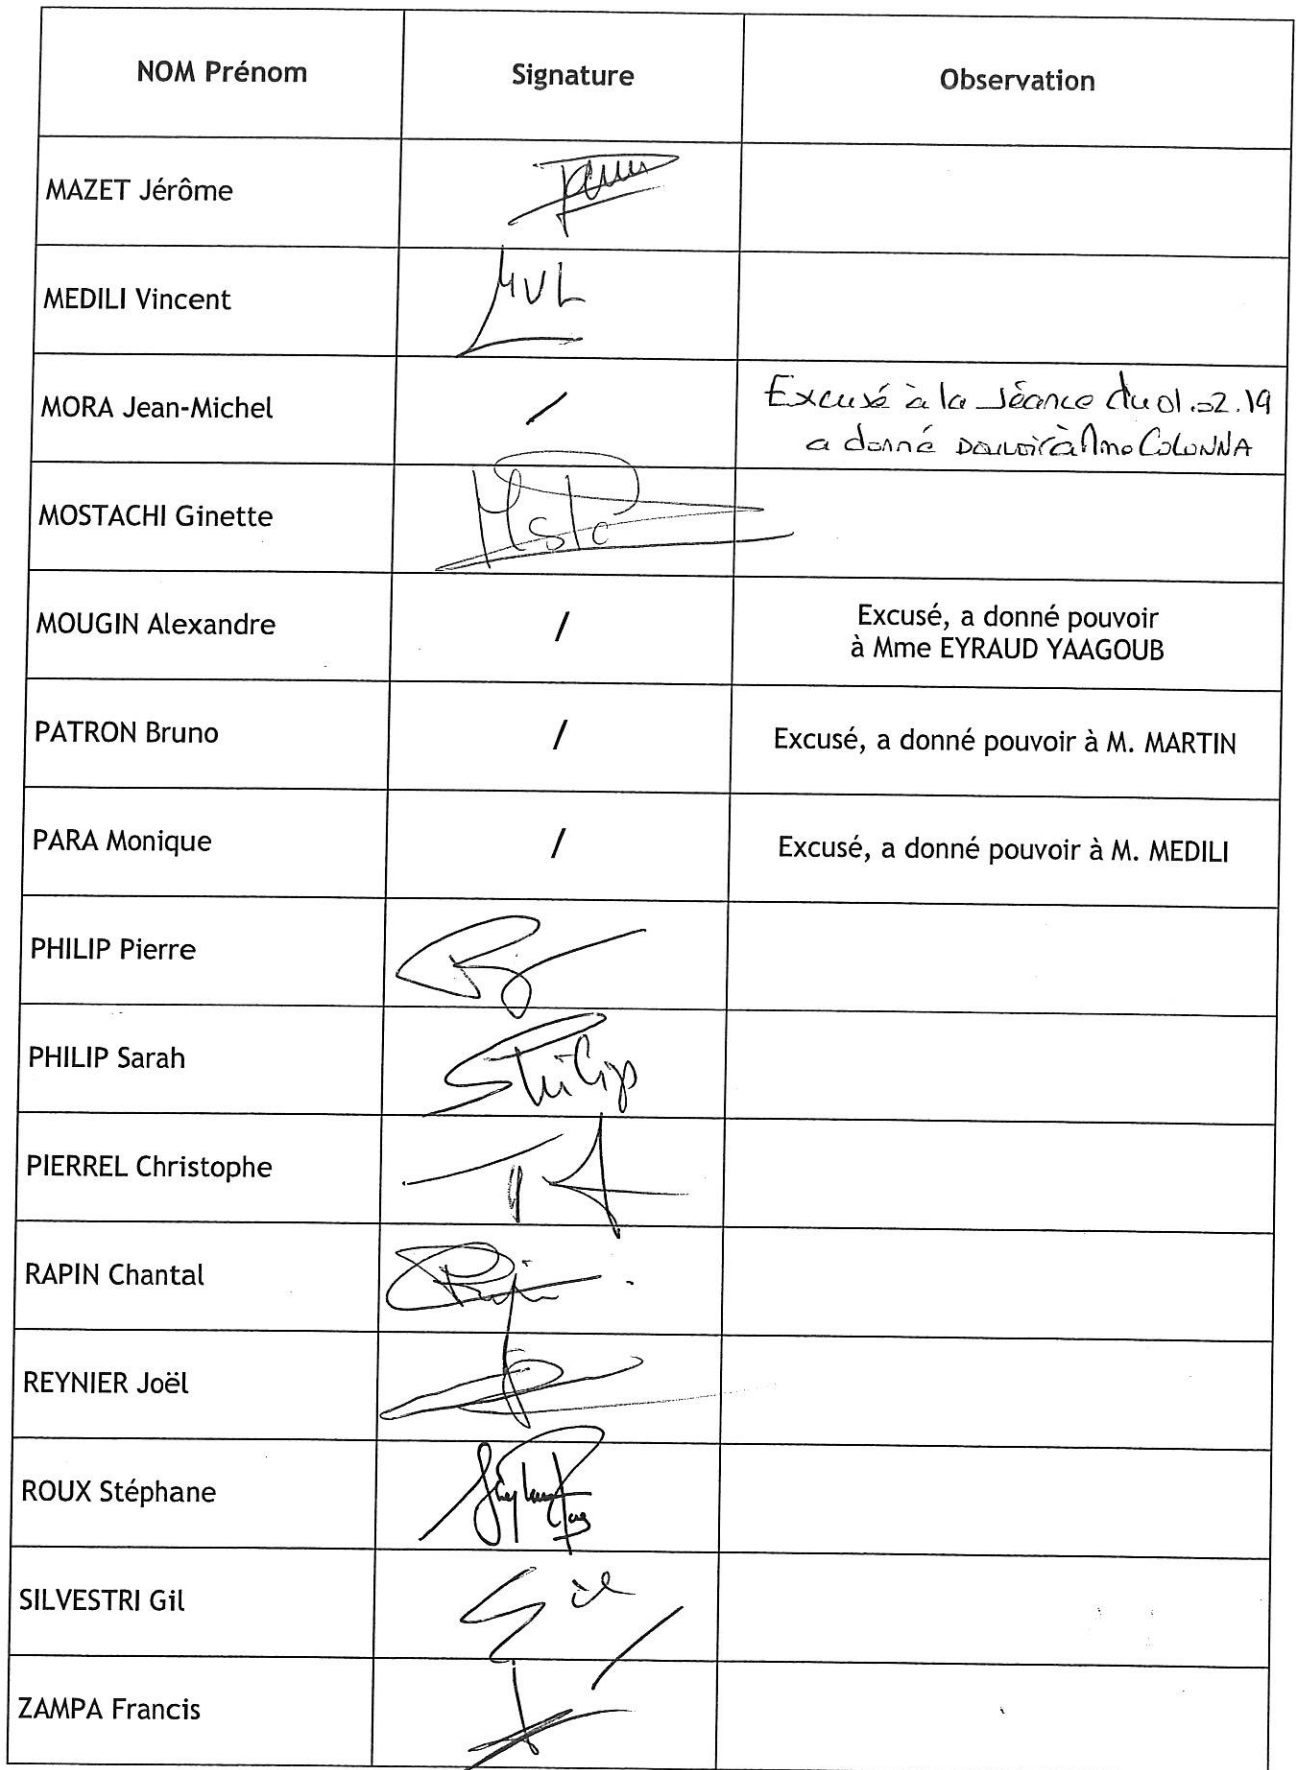 NOM Prénom Signature Observation
MAZET Jérôme
MEDILI Vincent
MVL
MORA Jean-Michel / Excusé à la séance du 01.02.19
a donné pouvoir à Mme COLONNA
MOSTACHI Ginette
MOUGIN Alexandre / Excusé, a donné pouvoir
à Mme EYRAUD YAAGOUB
PATRON Bruno / Excusé, a donné pouvoir à M. MARTIN
PARA Monique / Excusé, a donné pouvoir à M. MEDILI
PHILIP Pierre
PHILIP Sarah
SPhilip
PIERREL Christophe
RAPIN Chantal
REYNIER Joël
ROUX Stéphane
SILVESTRI Gil
ZAMPA Francis